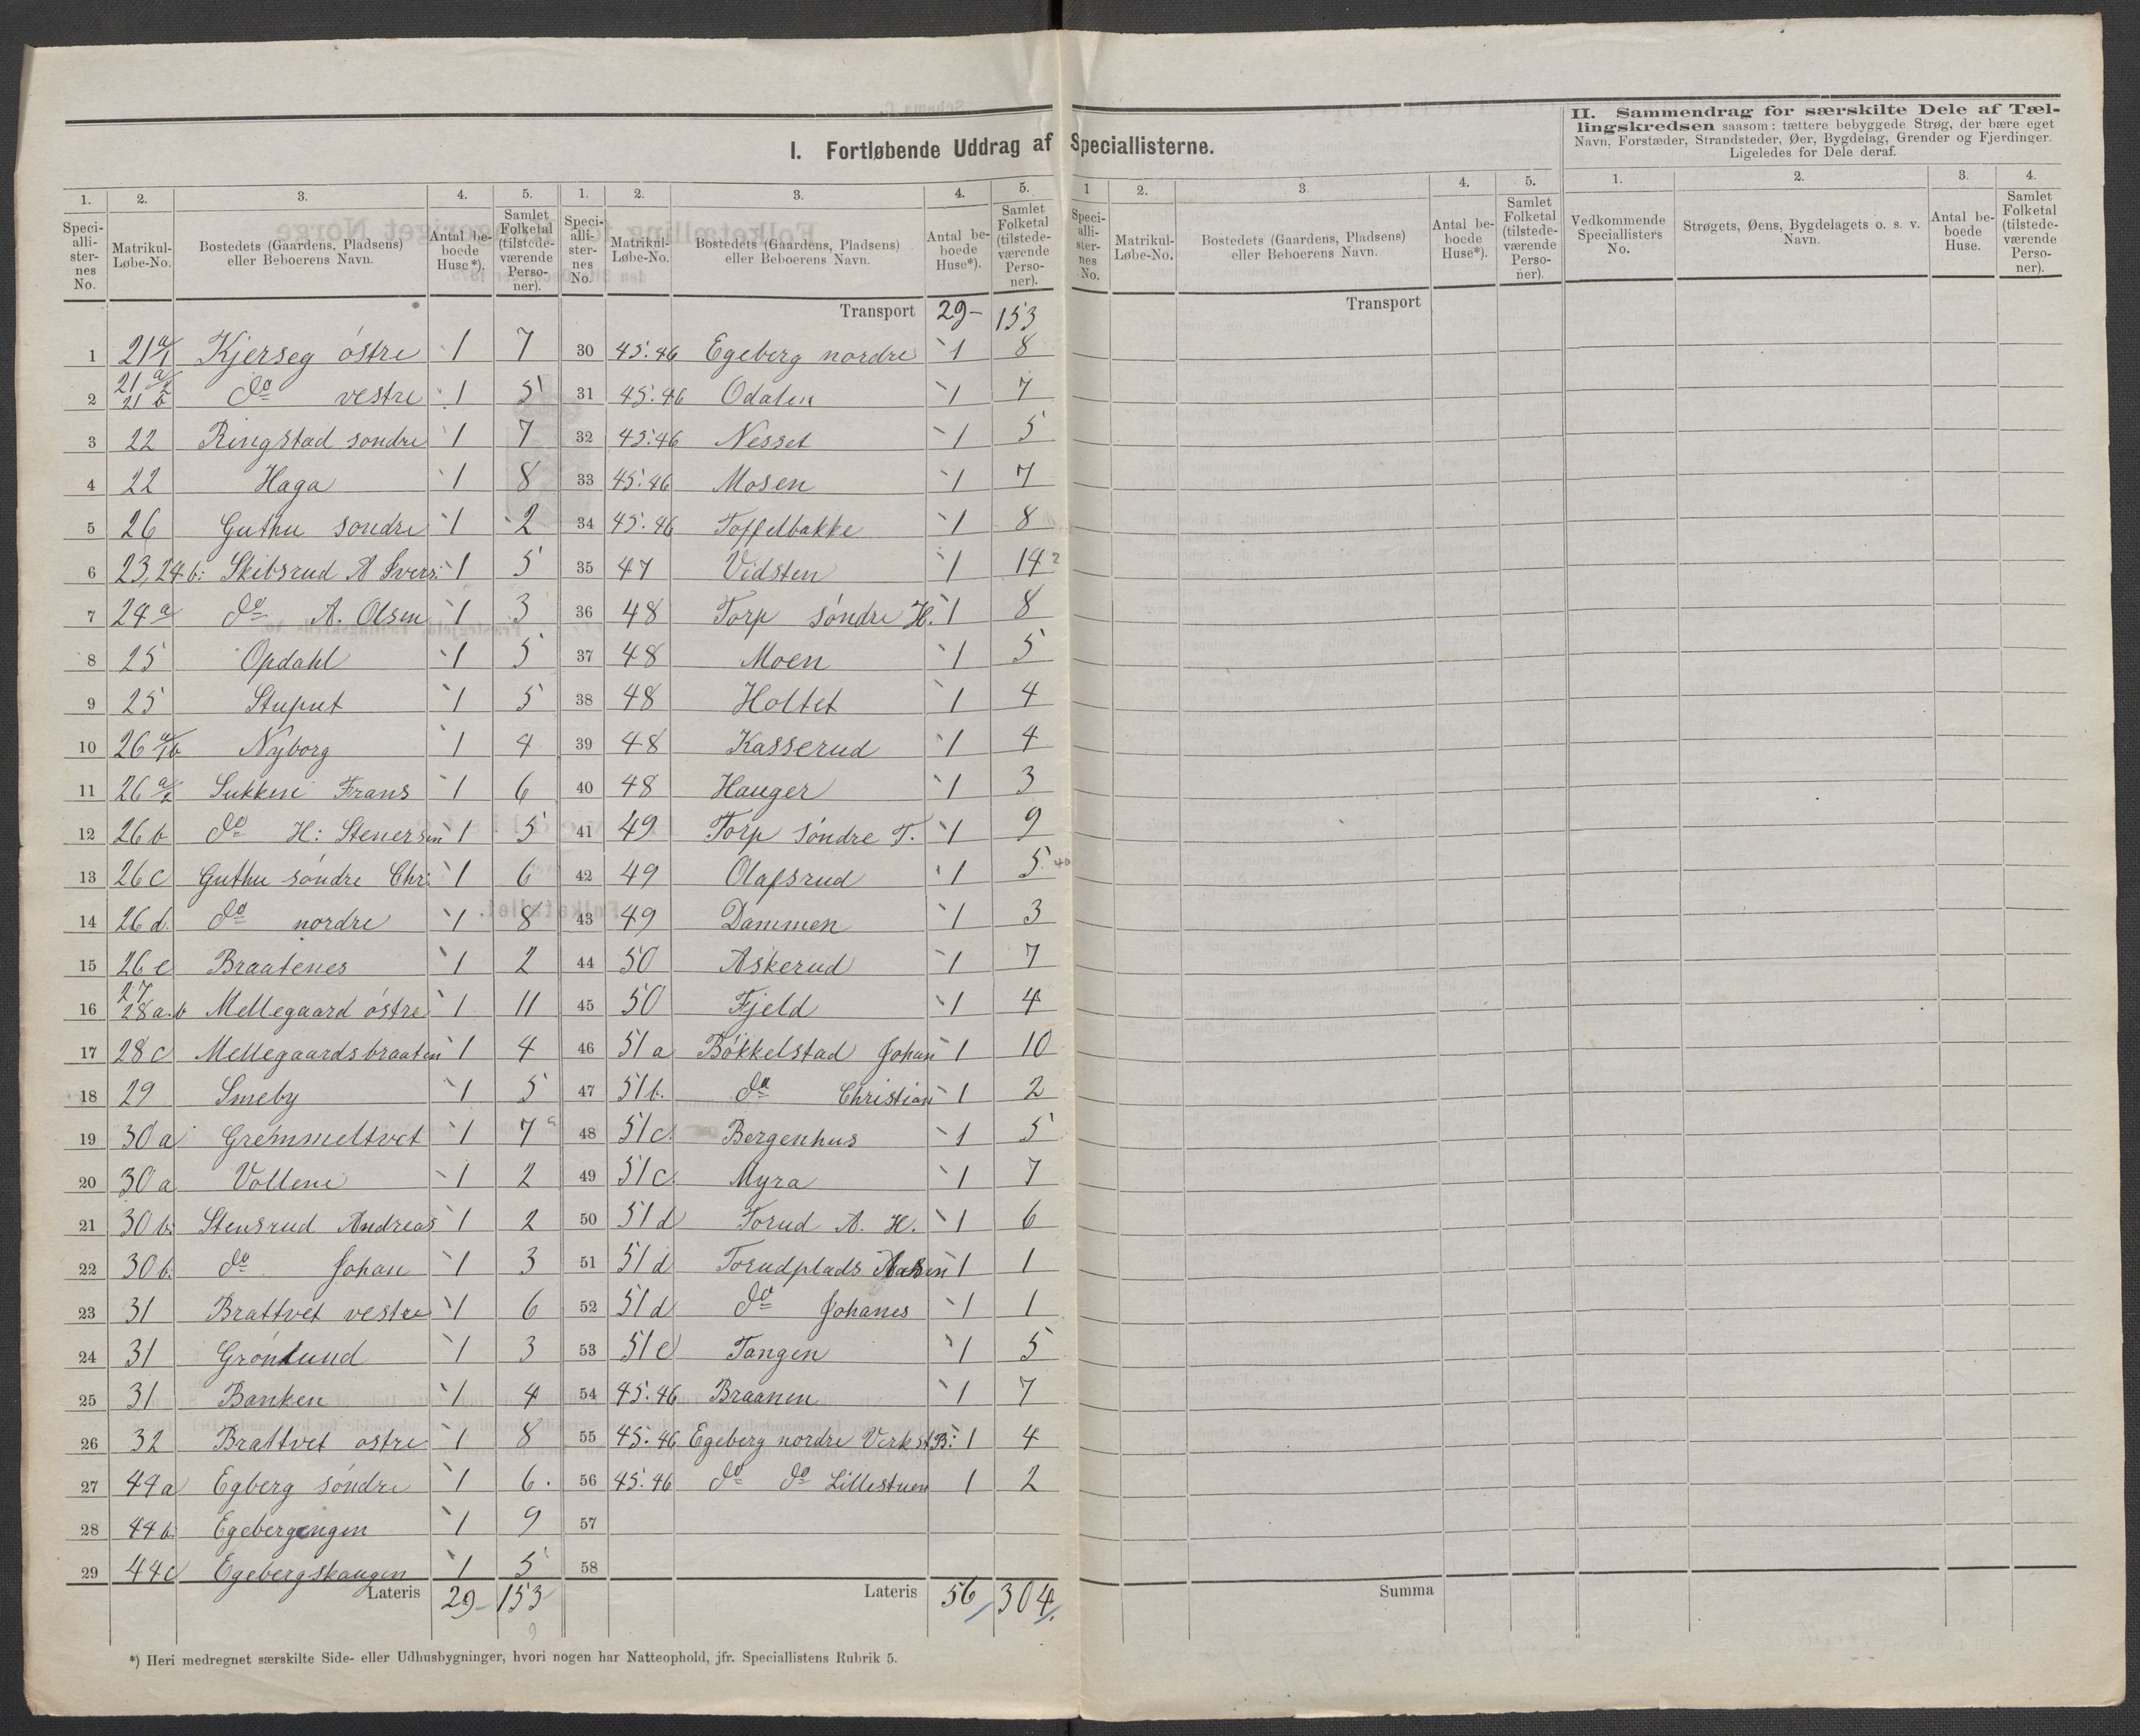 I. Fortløbende Uddrag af Speciallisterne.
1. 2. 3. 4. 5.
Speciallisternes No. Matrikul-Løbe-No. Bostedets (Gaardens, Pladsens) eller Beboerens Navn. Antal beboede Huse*). Samlet Folketal (tilstedeværende Personer).
1 21 a/1 Kjerseg östre 1 7
2 21 a/2 21 b do vestre 1 5
3 22 Ringstad sondre 1 7
4 22 Haga 1 8
5 26 Guthu sondre 1 2
6 23,24 b: Skibsrud A Svers: 1 5
7 24 a do A. Olsen 1 3
8 25 Opdahl 1 5
9 25 Stuput 1 5
10 26 a/1b Nyborg 1 4
11 26 a/2 Sukken Frans 1 6
12 26 b do H: Stenersen 1 5
13 26 c Guthu söndre Chr: 1 6
14 26 d. do nordre 1 8
15 26 e Braatenes 1 2
16 27 28 a.b Mellegaard östre 1 11
17 28 c Mellegaardsbraaten 1 4
18 29 Smeby 1 5
19 30 a Gremmeltvet 1 7
20 30 a Volleni 1 2
21 30 b: Stensrud Andreas 1 2
22 30 b: do Johan 1 3
23 31 Brattvet vestre 1 6
24 31 Grönlund 1 3
25 31 Banken 1 4
26 32 Brattvet ostre 1 8
27 44 a Egberg söndre 1 6.
28 44 b: Egebergengen 1 9
29 44 c Egebergskaugen 1 5
Lateris 29- 153
1. 2. 3. 4. 5.
Speciallisternes No. Matrikul-Løbe-No. Bostedets (Gaardens, Pladsens) eller Beboerens Navn. Antal beboede Huse*). Samlet Folketal (tilstedeværende Personer).
Transport 29- 153
30 45.46 Egeberg nordre 1 8
31 45.46 Odalen 1 7
32 45.46 Nesset 1 5
33 45.46 Mosen 1 7
34 45.46 Toffelbakke 1 8
35 47 Vidsten 1 14 2
36 48 Torp söndre H. 1 8
37 48 Moen 1 5
38 48 Holtet 1 4
39 48 Kasserud 1 4
40 48 Hauger 1 3
41 49 Torp söndre T. 1 9
42 49 Olafsrud 1 5
43 49 Dammen 1 3
44 50 Askerud 1 7
45 50 Fjeld 1 4
46 51 a Bökkelstad Johan 1 10
47 51 b. do Christian 1 2
48 51 c. Bergenhus 1 5
49 51 c. Myra 1 7
50 51 d Torud A. H. 1 6
51 51 d Torudplads 1 1
52 51 d do Johanes 1 1
53 51 e Tangen 1 5
54 45.46 Braanen 1 7
55 45.46 Egeberg nordre Verkst B: 1 4
56 45.46 do do Lillestuen 1 2
57
58
Lateris 56 304
1 2. 3 4. 5.
Speciallisternes No. Matrikul-Løbe-No. Bostedets (Gaardens, Pladsens) eller Beboerens Navn. Antal beboede Huse*). Samlet Folketal (tilstedeværende Personer).
Transport
Summa
II. Sammendrag for særskilte Dele af Tæl-
lingskredsen saasom: tættere bebyggede Strøg, der bære eget
Navn, Forstæder, Strandsteder, Øer, Bygdelag, Grender og Fjerdinger.
Ligeledes for Dele deraf.
1. 2. 3. 4.
Vedkommende Speciallisters No. Strøgets, Øens, Bygdelagets o. s. v. Navn. Antal beboede Huse. Samlet Folketal (tilstedeværende Personer).
*) Heri medregnet særskilte Side- eller Udhusbygninger, hvori nogen har Natteophold, jfr. Speciallistens Rubrik 5.